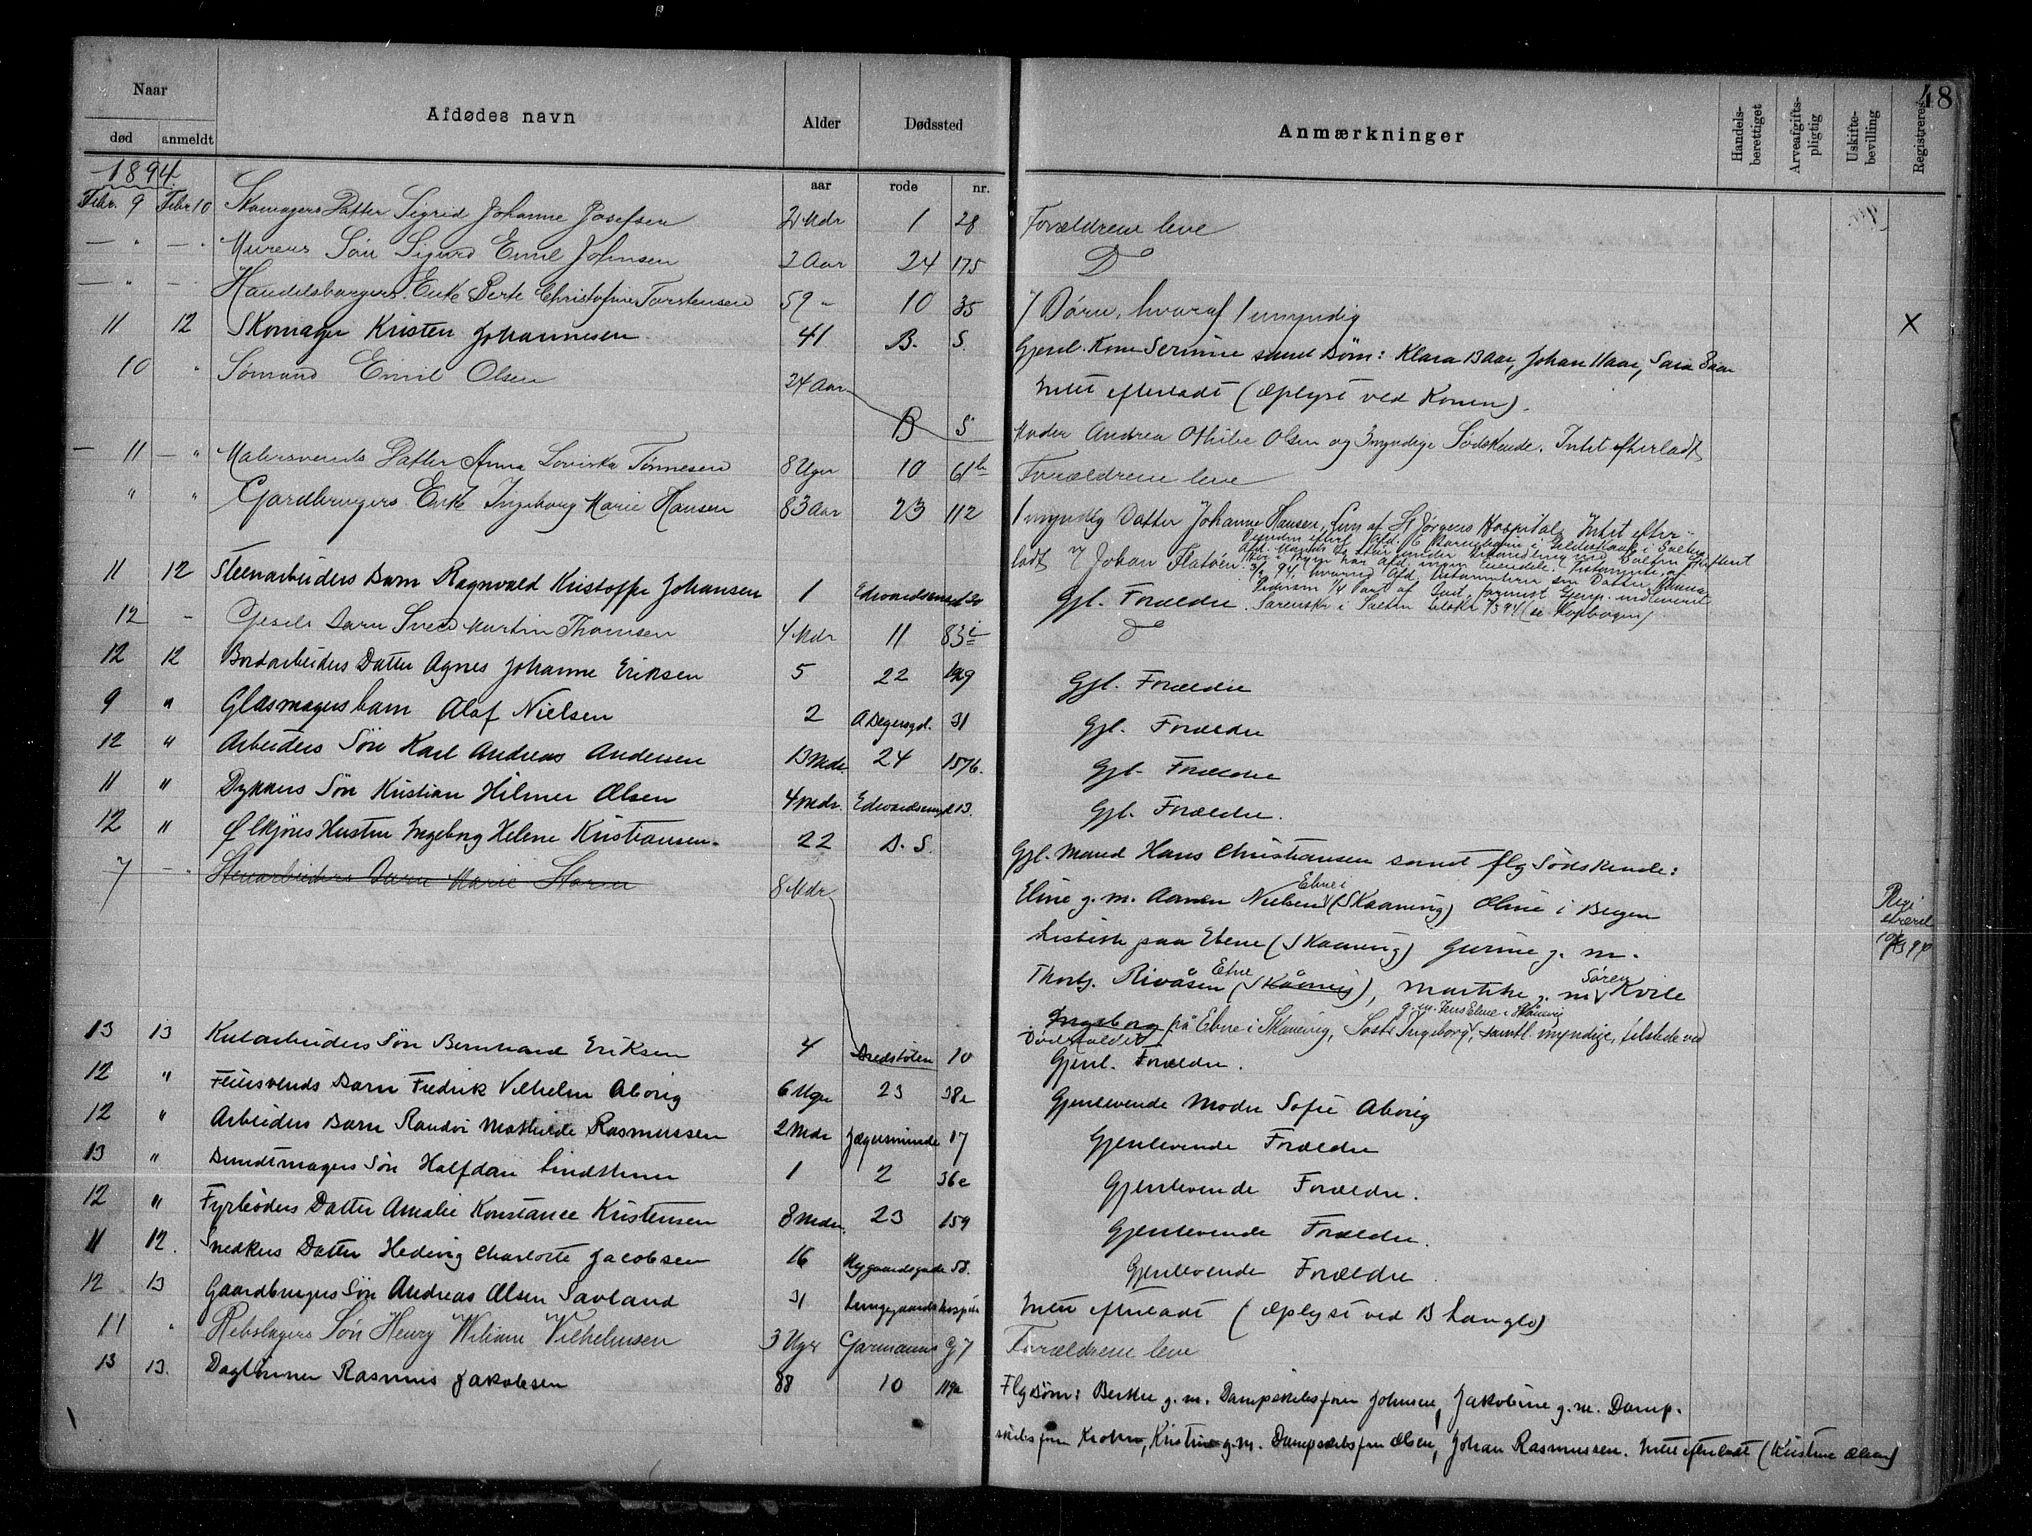 48
Naar
Afdødes navn
Alder
Dødssted
Anmærkninger
Handelsberettiget
Arveafgiftspligtig
Uskiftebevilling
Registreres
død anmeldt
aar rode nr.
1894
Febr. 9 Febr 10 Skomagers Datter Sigrid Johanne Josefsen 2 Mdr 1 28 Forældrene leve
— " — " Murers Søn Sigurd Emil Johnsen 2 Aar 24 175 Do
— " — " Handelsborgers Enke Berte Christofine Torstensen 59 " 10 35 7 Børn, hvoraf 1 umyndig X
11 12 Skomager Kristen Johannesen 41 B. S. Gjenl. Kone Serine samt Børn: Klara 13 aar, Johan 11 aar, Sara 8 aar
Intet efterladt (Oplyst ved Konen).
10 " Sømand Emil Olsen 24 Aar B S Moder Andrea Othilie Olsen og 3 myndige Sødskende. Intet efterladt
— 11 — " Malersvends Datter Anna Loviska Tønnesen 8 Uger 10 61 b Forældrene leve
" " Gardbrugers Enke Ingeborg Marie Hansen 83 Aar 23 112 1 myndig Datter Johanne Hansen, Lem af St Jørgens Hospital, Intet efter-
ladt Johan Flatøen
11 12 Steenarbeiders Barn Ragnvald Kristoffer Johansen 1 Edvardsens 20 Gjl. Forældre
12 — Gesels Barn Sverd Martin Thomsen 4 Mdr 11 83 i Do
12 12 Bordarbeiders Datter Agnes Johanne Eriksen 5 22 Gjl. Forældre
9 " Glasmagers barn Olaf Nielsen 2 31 Gjl. Forældre
12 " Arbeiders Søn Karl Andreas Andersen 13 Mdr. 24 157b. Gjl. Forældre
11 " Dykkers Søn Kristian Hilmer Olsen 4 Mdr. Edvardsens 13. Gjl. Forældre.
12 " Ølkjøres Hustru Ingeborg Helene Kristiansen. 22 B. S. Gjl. Mand Hans Christiansen samt flg Sødskende:
7 — " Stenarbeiders Barn Marie Storm 8 Mdr
Eline g. m. Aamen Nielsen Ebne i (Skaanevig) Oline i Bergen
Lisbeth paa Ebene (Skaanevig) Gurine g. m.
Thorb. Rivåsen Ebne (Skånevig), Marthe g. m. Søren Kvile
Ingeborg på Ebne i Skanevig, Søster Ingeborg g. m. Jens Ebne i Skånevig, samtl. myndige, tilstede ved
Dødsfaldet
13 13 Kularbeiders Søn Bernhard Eriksen 4 Bredstølen 10 Gjenl. Forældre.
12 " Feiersvends Barn Fredrik Vilhelm Aborig 6 Uger 23 38a Gjenlevende Moder Sofie Aborig
12 " Arbeiders Barn Randvi Mathilde Rasmussen 2 Mdr Jægersminde 17 Gjenlevende Forældre
13 " Bundtmagers Søn Halfdan Lindthner 1 2 36c Gjenlevende Forældre.
12 " Fyrbøders Datter Amalie Konstance Kristensen 8 Mdr. 23 159 Gjenlevende Forældre.
11 12. Snedkers Datter Hedevig Charlotte Jacobsen 16 Nygaardsgade 58. Gjenlevende Forældre.
12 13 Gaardbrugers Søn Andreas Olsen Savland 31 Lungegaards hospital Intet efterladt (Oplyst ved B Langlo)
11 " Rebslagers Søn Henry Wiliam Vilhelmsen 3 Uger Garmanns G 7 Forældrene leve
13 13. Daglønner Rasmus Jakobsen 88 10 119a Flg Børn: Berthe g. m. Dampskibsfører Johnsen, Jakobine g. m. Damp-
skibsfører Krohn, Kristine g. m. Dampskibsfører Olsen, Johan Rasmussen. Intet efterladt (Kristine Olsen)
Regi-
streret